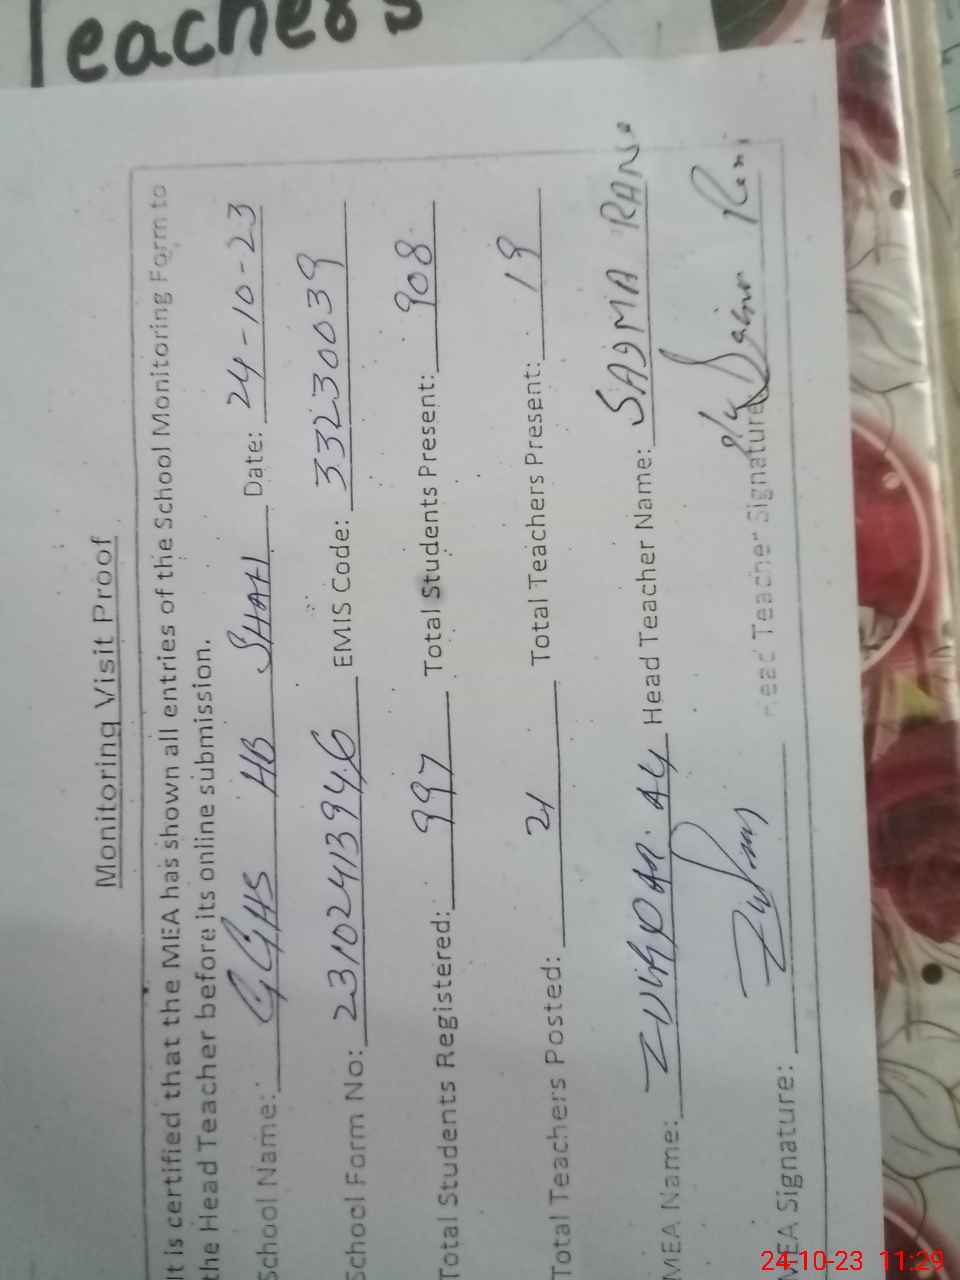 Teachers
Monitoring Visit Proof
It is certified that the MEA has shown all entries of the School Monitoring Form to
the Head Teacher before its online submission.
School Name: GGHS HB SHAH Date: 24-10-23
School Form No: 23102413946 EMIS Code: 33230039
Total Students Registered: 997 Total Students Present: 908
Total Teachers Posted: 21 Total Teachers Present: 19
MEA Name: Head Teacher Name: RANI
MEA Signature: Head Teacher Signature
24-10-23 11:29